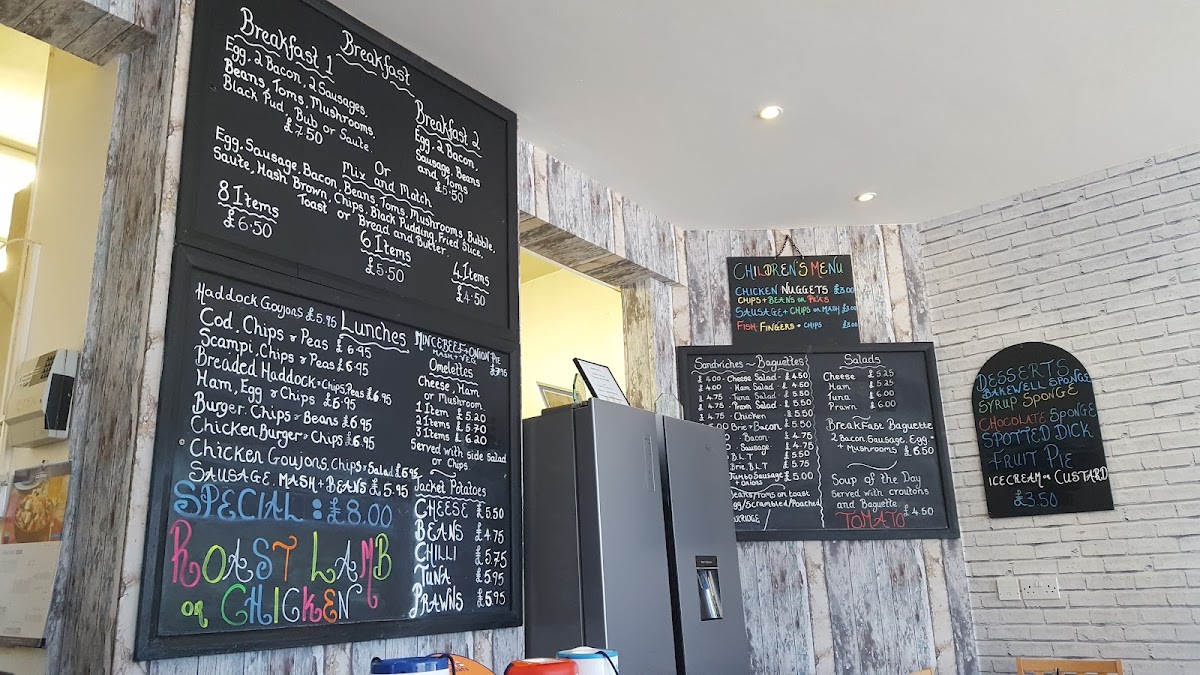 Breakfast
Breakfast 1
Egg, 2 Bacon, 2 Sausages,
Beans, Toms, Mushrooms,
Black Pud, Bub or Saute.
£7.50
Breakfast 2
Egg, 2 Bacon,
Sausage, Beans
and Toms
£5.50
Or
Mix and Match
Egg, Sausage, Bacon, Beans, Toms, Mushrooms, Bubble,
Saute, Hash Brown, Chips, Black Pudding, Fried Slice,
Toast or Bread and Butter.
8 Items
£6.50
6 Items
£5.50
4 Items
£4.50
Lunches
Haddock Goujons £5.95
Cod, Chips & Peas £6.95
Scampi, Chips & Peas £6.95
Breaded Haddock, Chips, Peas £6.95
Ham, Egg & Chips £6.95
Burger, Chips & Beans £6.95
Chicken Burger & Chips £6.95
Chicken Goujons, Chips & Salad £6.95
Sausage, Mash + Beans £5.95
Special : £8.00
Roast Lamb
or Chicken
Mince Beef + Onion Pie
Mash + Veg
Omelettes
Cheese, Ham
or Mushroom.
1 Item £5.20
2 Items £5.70
3 Items £6.20
Served with side salad
or Chips.
Jacket Potatoes
Cheese £5.50
Beans £4.75
Chilli £5.75
Tuna £5.95
Prawns £5.95
Children's Menu
Chicken Nuggets £3.00
Chips + Beans or Peas
Sausage + Chips or Mash £3.00
Fish Fingers + Chips £3.00
Sandwiches ~ Baguettes
£4.00 - Cheese Salad - £4.50
£4.00 - Ham Salad - £4.50
£4.75 - Tuna Salad - £5.50
£4.75 - Prawn Salad - £5.50
- Chicken £5.50
Brie + Bacon £5.50
Bacon £4.75
Sausage £4.75
B.L.T £5.50
Brie, B.L.T £5.75
Jumbo Sausage £5.00
+ Onions
Beans, Toms on toast
Egg/Scrambled/Poached
Salads
Cheese £5.25
Ham £5.25
Tuna £6.00
Prawn £6.00
Breakfast Baguette
2 Bacon, Sausage, Egg,
+ Mushrooms £6.50
Soup of the Day
Served with croutons
and Baguette
Tomato £4.50
Desserts
Bakewell Sponge
Syrup Sponge
Chocolate Sponge
Spotted Dick
Fruit Pie
Icecream or Custard
£3.50